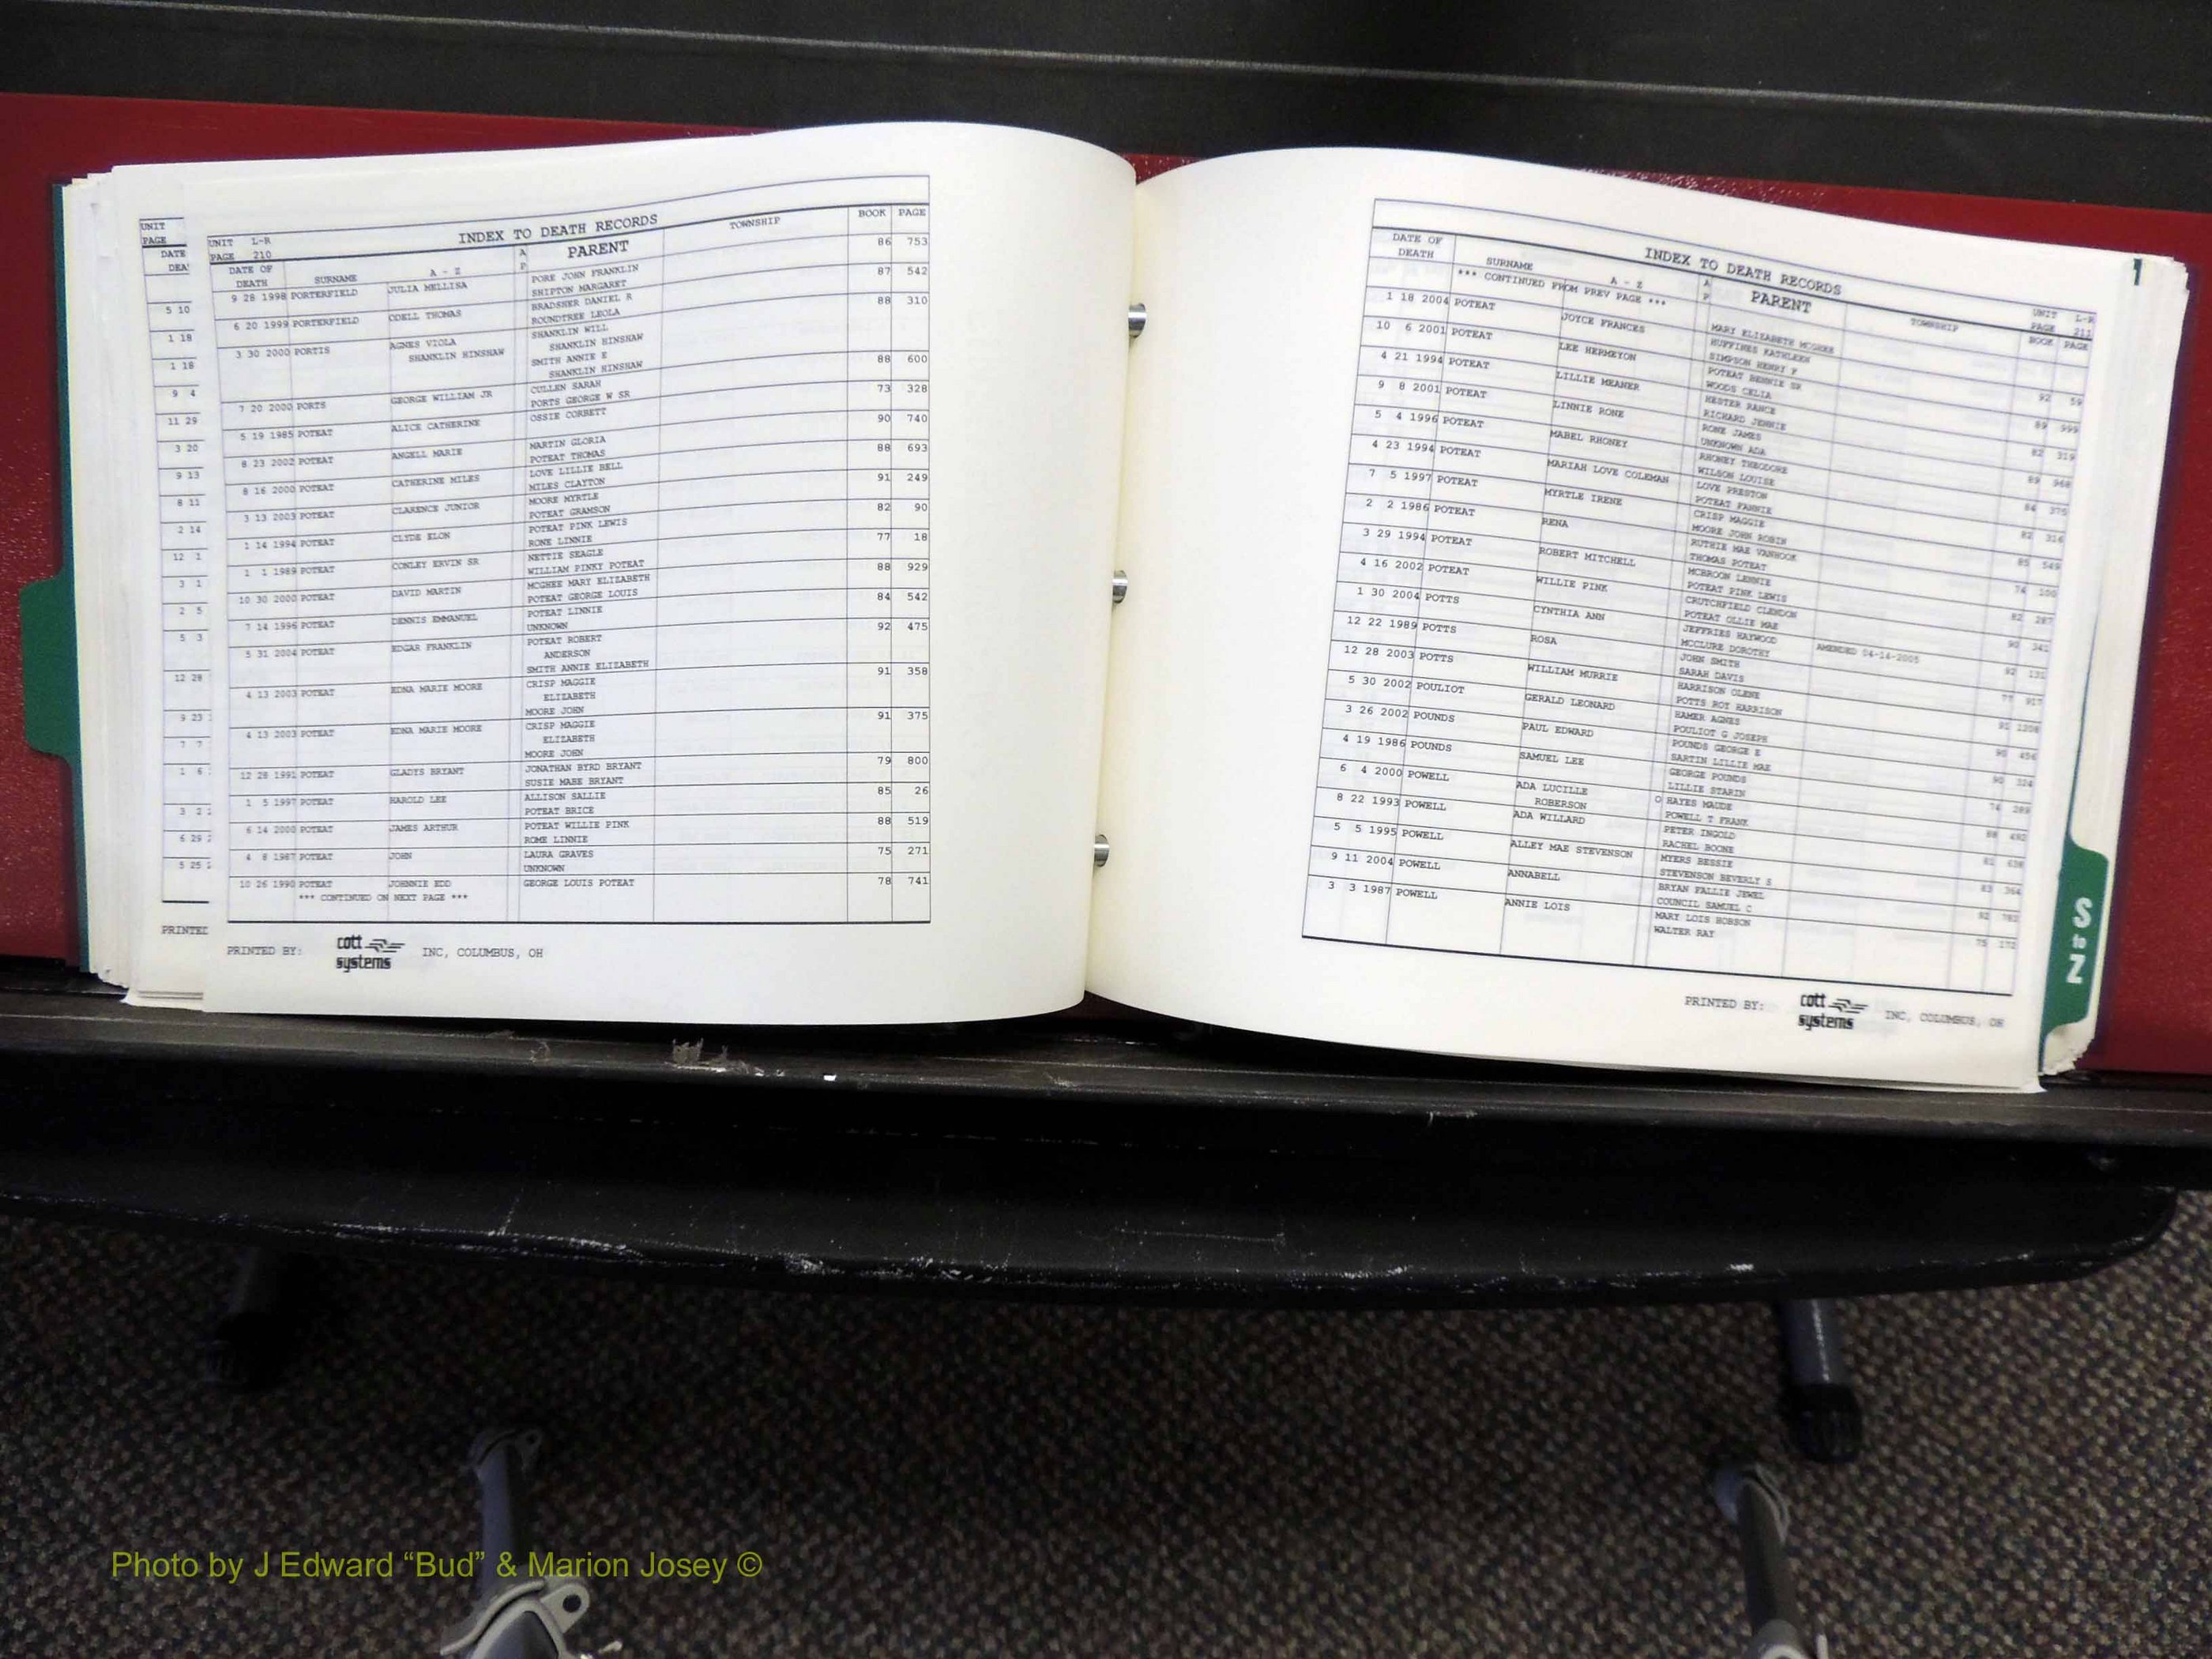 UNIT
PAGE
DATE
DEA
5 10
1 18
1 18
9 4
11 29
3 20
9 13
8 11
2 14
12 1
3 1
2 5
5 3
12 28
9 23
7 7
1 6
3 2
6 29
5 25
PRINTED
UNIT L-R INDEX TO DEATH RECORDS
PAGE 210
DATE OF DEATH SURNAME A - Z A P PARENT TOWNSHIP BOOK PAGE
9 28 1998 PORTERFIELD JULIA MELLISA PORE JOHN FRANKLIN 86 753
SHIPTON MARGARET
6 20 1999 PORTERFIELD ODELL THOMAS BRADSHER DANIEL R 87 542
ROUNDTREE LEOLA
3 30 2000 PORTIS AGNES VIOLA SHANKLIN WILL 88 310
SHANKLIN HINSHAW SHANKLIN HINSHAW
SMITH ANNIE E
SHANKLIN HINSHAW
7 20 2000 PORTS GEORGE WILLIAM JR CULLEN SARAH 88 600
PORTS GEORGE W SR
5 19 1985 POTEAT ALICE CATHERINE OSSIE CORBETT 73 328
8 23 2002 POTEAT ANGELL MARIE MARTIN GLORIA 90 740
POTEAT THOMAS
8 16 2000 POTEAT CATHERINE MILES LOVE LILLIE BELL 88 693
MILES CLAYTON
3 13 2003 POTEAT CLARENCE JUNIOR MOORE MYRTLE 91 249
POTEAT GRAMSON
1 14 1994 POTEAT CLYDE ELON POTEAT PINK LEWIS 82 90
RONE LINNIE
1 1 1989 POTEAT CONLEY ERVIN SR NETTIE SEAGLE 77 18
WILLIAM PINKY POTEAT
10 30 2000 POTEAT DAVID MARTIN MCGHEE MARY ELIZABETH 88 929
POTEAT GEORGE LOUIS
7 14 1996 POTEAT DENNIS EMMANUEL POTEAT LINNIE 84 542
UNKNOWN
5 31 2004 POTEAT EDGAR FRANKLIN POTEAT ROBERT 92 475
ANDERSON
SMITH ANNIE ELIZABETH
4 13 2003 POTEAT EDNA MARIE MOORE CRISP MAGGIE 91 358
ELIZABETH
MOORE JOHN
4 13 2003 POTEAT EDNA MARIE MOORE CRISP MAGGIE 91 375
ELIZABETH
MOORE JOHN
12 28 1991 POTEAT GLADYS BRYANT JONATHAN BYRD BRYANT 79 800
SUSIE MABE BRYANT
1 5 1997 POTEAT HAROLD LEE ALLISON SALLIE 85 26
POTEAT BRICE
6 14 2000 POTEAT JAMES ARTHUR POTEAT WILLIE PINK 88 519
ROME LINNIE
4 8 1987 POTEAT JOHN LAURA GRAVES 75 271
UNKNOWN
10 26 1990 POTEAT JOHNNIE EDD GEORGE LOUIS POTEAT 78 741
*** CONTINUED ON NEXT PAGE ***
PRINTED BY: cott systems INC, COLUMBUS, OH
INDEX TO DEATH RECORDS UNIT L-R
PAGE 211
DATE OF DEATH SURNAME A - Z A P PARENT TOWNSHIP BOOK PAGE
*** CONTINUED FROM PREV PAGE ***
MARY ELIZABETH MCGHEE
1 18 2004 POTEAT JOYCE FRANCES HUFFINES KATHLEEN 92 59
SIMPSON HENRY F
10 6 2001 POTEAT LEE HERMEYON POTEAT BENNIE SR 89 999
WOODS CELIA
4 21 1994 POTEAT LILLIE MEANER HESTER RANCE 82 319
RICHARD JENNIE
9 8 2001 POTEAT LINNIE RONE RONE JAMES 89 968
UNKNOWN ADA
5 4 1996 POTEAT MABEL RHONEY RHONEY THEODORE 84 375
WILSON LOUISE
4 23 1994 POTEAT MARIAH LOVE COLEMAN LOVE PRESTON 82 316
POTEAT FANNIE
7 5 1997 POTEAT MYRTLE IRENE CRISP MAGGIE 85 549
MOORE JOHN ROBIN
2 2 1986 POTEAT RENA RUTHIE MAE VANHOOK 74 100
THOMAS POTEAT
3 29 1994 POTEAT ROBERT MITCHELL MCBROON LENNIE 82 287
POTEAT PINK LEWIS
4 16 2002 POTEAT WILLIE PINK CRUTCHFIELD CLENDON 90 341
POTEAT OLLIE MAE
1 30 2004 POTTS CYNTHIA ANN JEFFRIES HAYWOOD AMENDED 04-14-2005 92 131
MCCLURE DOROTHY
12 22 1989 POTTS ROSA JOHN SMITH 77 917
SARAH DAVIS
12 28 2003 POTTS WILLIAM MURRIE HARRISON OLENE 91 1208
POTTS ROY HARRISON
5 30 2002 POULIOT GERALD LEONARD HAMER AGNES 90 456
POULIOT G JOSEPH
3 26 2002 POUNDS PAUL EDWARD POUNDS GEORGE E 90 324
SARTIN LILLIE MAE
4 19 1986 POUNDS SAMUEL LEE GEORGE POUNDS 74 289
LILLIE STARIN
6 4 2000 POWELL ADA LUCILLE O HAYES MAUDE 88 492
ROBERSON POWELL T FRANK
8 22 1993 POWELL ADA WILLARD PETER INGOLD 81 638
RACHEL BOONE
5 5 1995 POWELL ALLEY MAE STEVENSON MYERS BESSIE 83 364
STEVENSON BEVERLY S
9 11 2004 POWELL ANNABELL BRYAN FALLIE JEWEL 92 782
COUNCIL SAMUEL C
3 3 1987 POWELL ANNIE LOIS MARY LOIS HOBSON 75 172
WALTER RAY
PRINTED BY: cott systems INC, COLUMBUS, OH
S to Z
Photo by J Edward “Bud” & Marion Josey ©